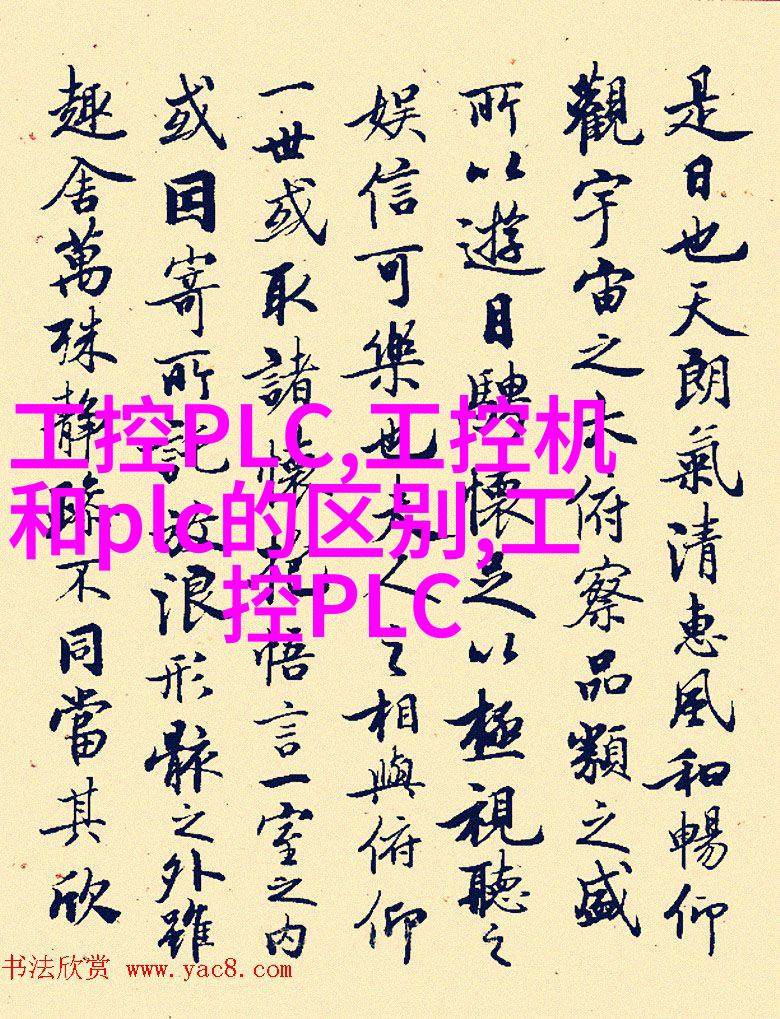 是日也天朗氣清惠風和暢仰
觀宇宙之大俯察品類之盛
所以遊目騁懷足以極視聽之
娛信可樂也夫人之相與俯仰
一世或取諸懷抱悟言一室之内
或因寄所託放浪形骸之外雖
趣舍萬殊静躁不同當其欣
工控PLC,工控机
和plc的区别,工
控PLC
书法欣赏 www.yac8.com